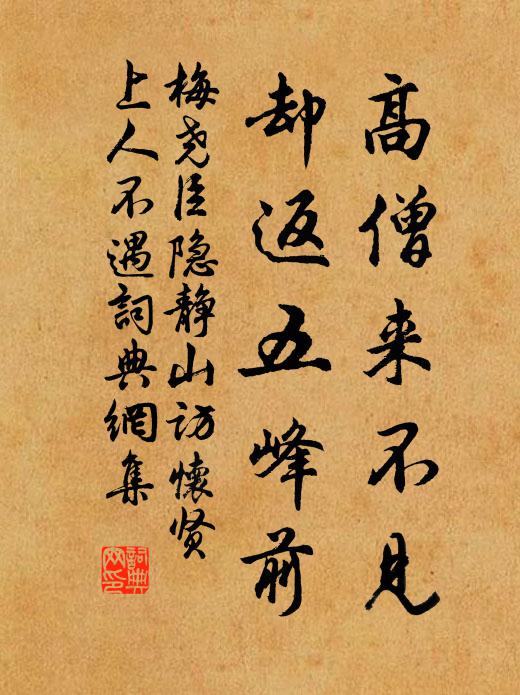 高僧来不见
却返五峰前
梅尧臣隐静山访怀贤
上人不遇詞典網集
詞典
网印